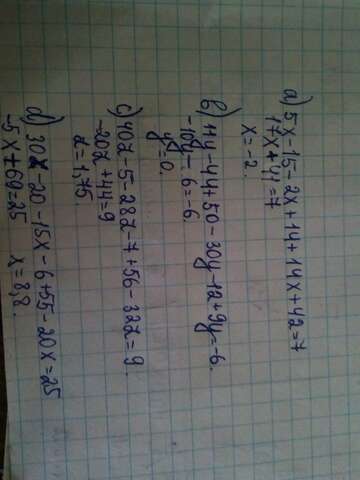 а) 5x-15-2x+14+14x+42=7
17x+41=7
x=-2.
в) 11y-44+50-30y-12+9y=-6.
-10y-6=-6.
y=0.
с) 40z-5-28z-7+56-32z=9.
-20z+44=9
z=1,75.
d) 30x-20-15x-6+55-20x=25
-5x+69=25
x=8,8.